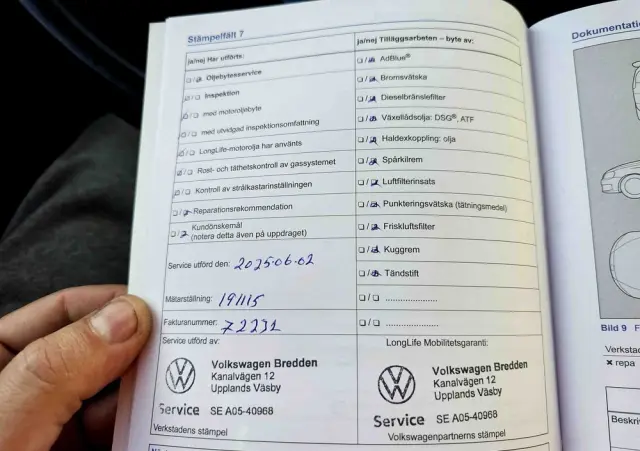 Stämpelfält 7
ja/nej Har utförts:
Oljebytesservice
Inspektion
med motoroljebyte
med utvidgad inspektionsomfattning
LongLife-motorolja har använts
Rost- och täthetskontroll av gassystemet
Kontroll av strålkastarinställningen
Reparationsrekommendation
Kundönskemål
(notera detta även på uppdraget)
Service utförd den: 2025-06-02
Mätarställning: 191115
Fakturanummer: 72231
Service utförd av:
Volkswagen Bredden
Kanalvägen 12
Upplands Väsby
Service SE A05-40968
Verkstadens stämpel
ja/nej Tilläggsarbeten – byte av:
AdBlue®
Bromsvätska
Dieselbränslefilter
Växellådsolja: DSG®, ATF
Haldexkoppling: olja
Spårkilrem
Luftfilterinsats
Punkteringsvätska (tätningsmedel)
Friskluftsfilter
Kuggrem
Tändstift
LongLife Mobilitetsgaranti:
Volkswagen Bredden
Kanalvägen 12
Upplands Väsby
Service SE A05-40968
Volkswagenpartnerns stämpel
Dokumentati
Bild 9 F
Verkstad
× repa
Beskri